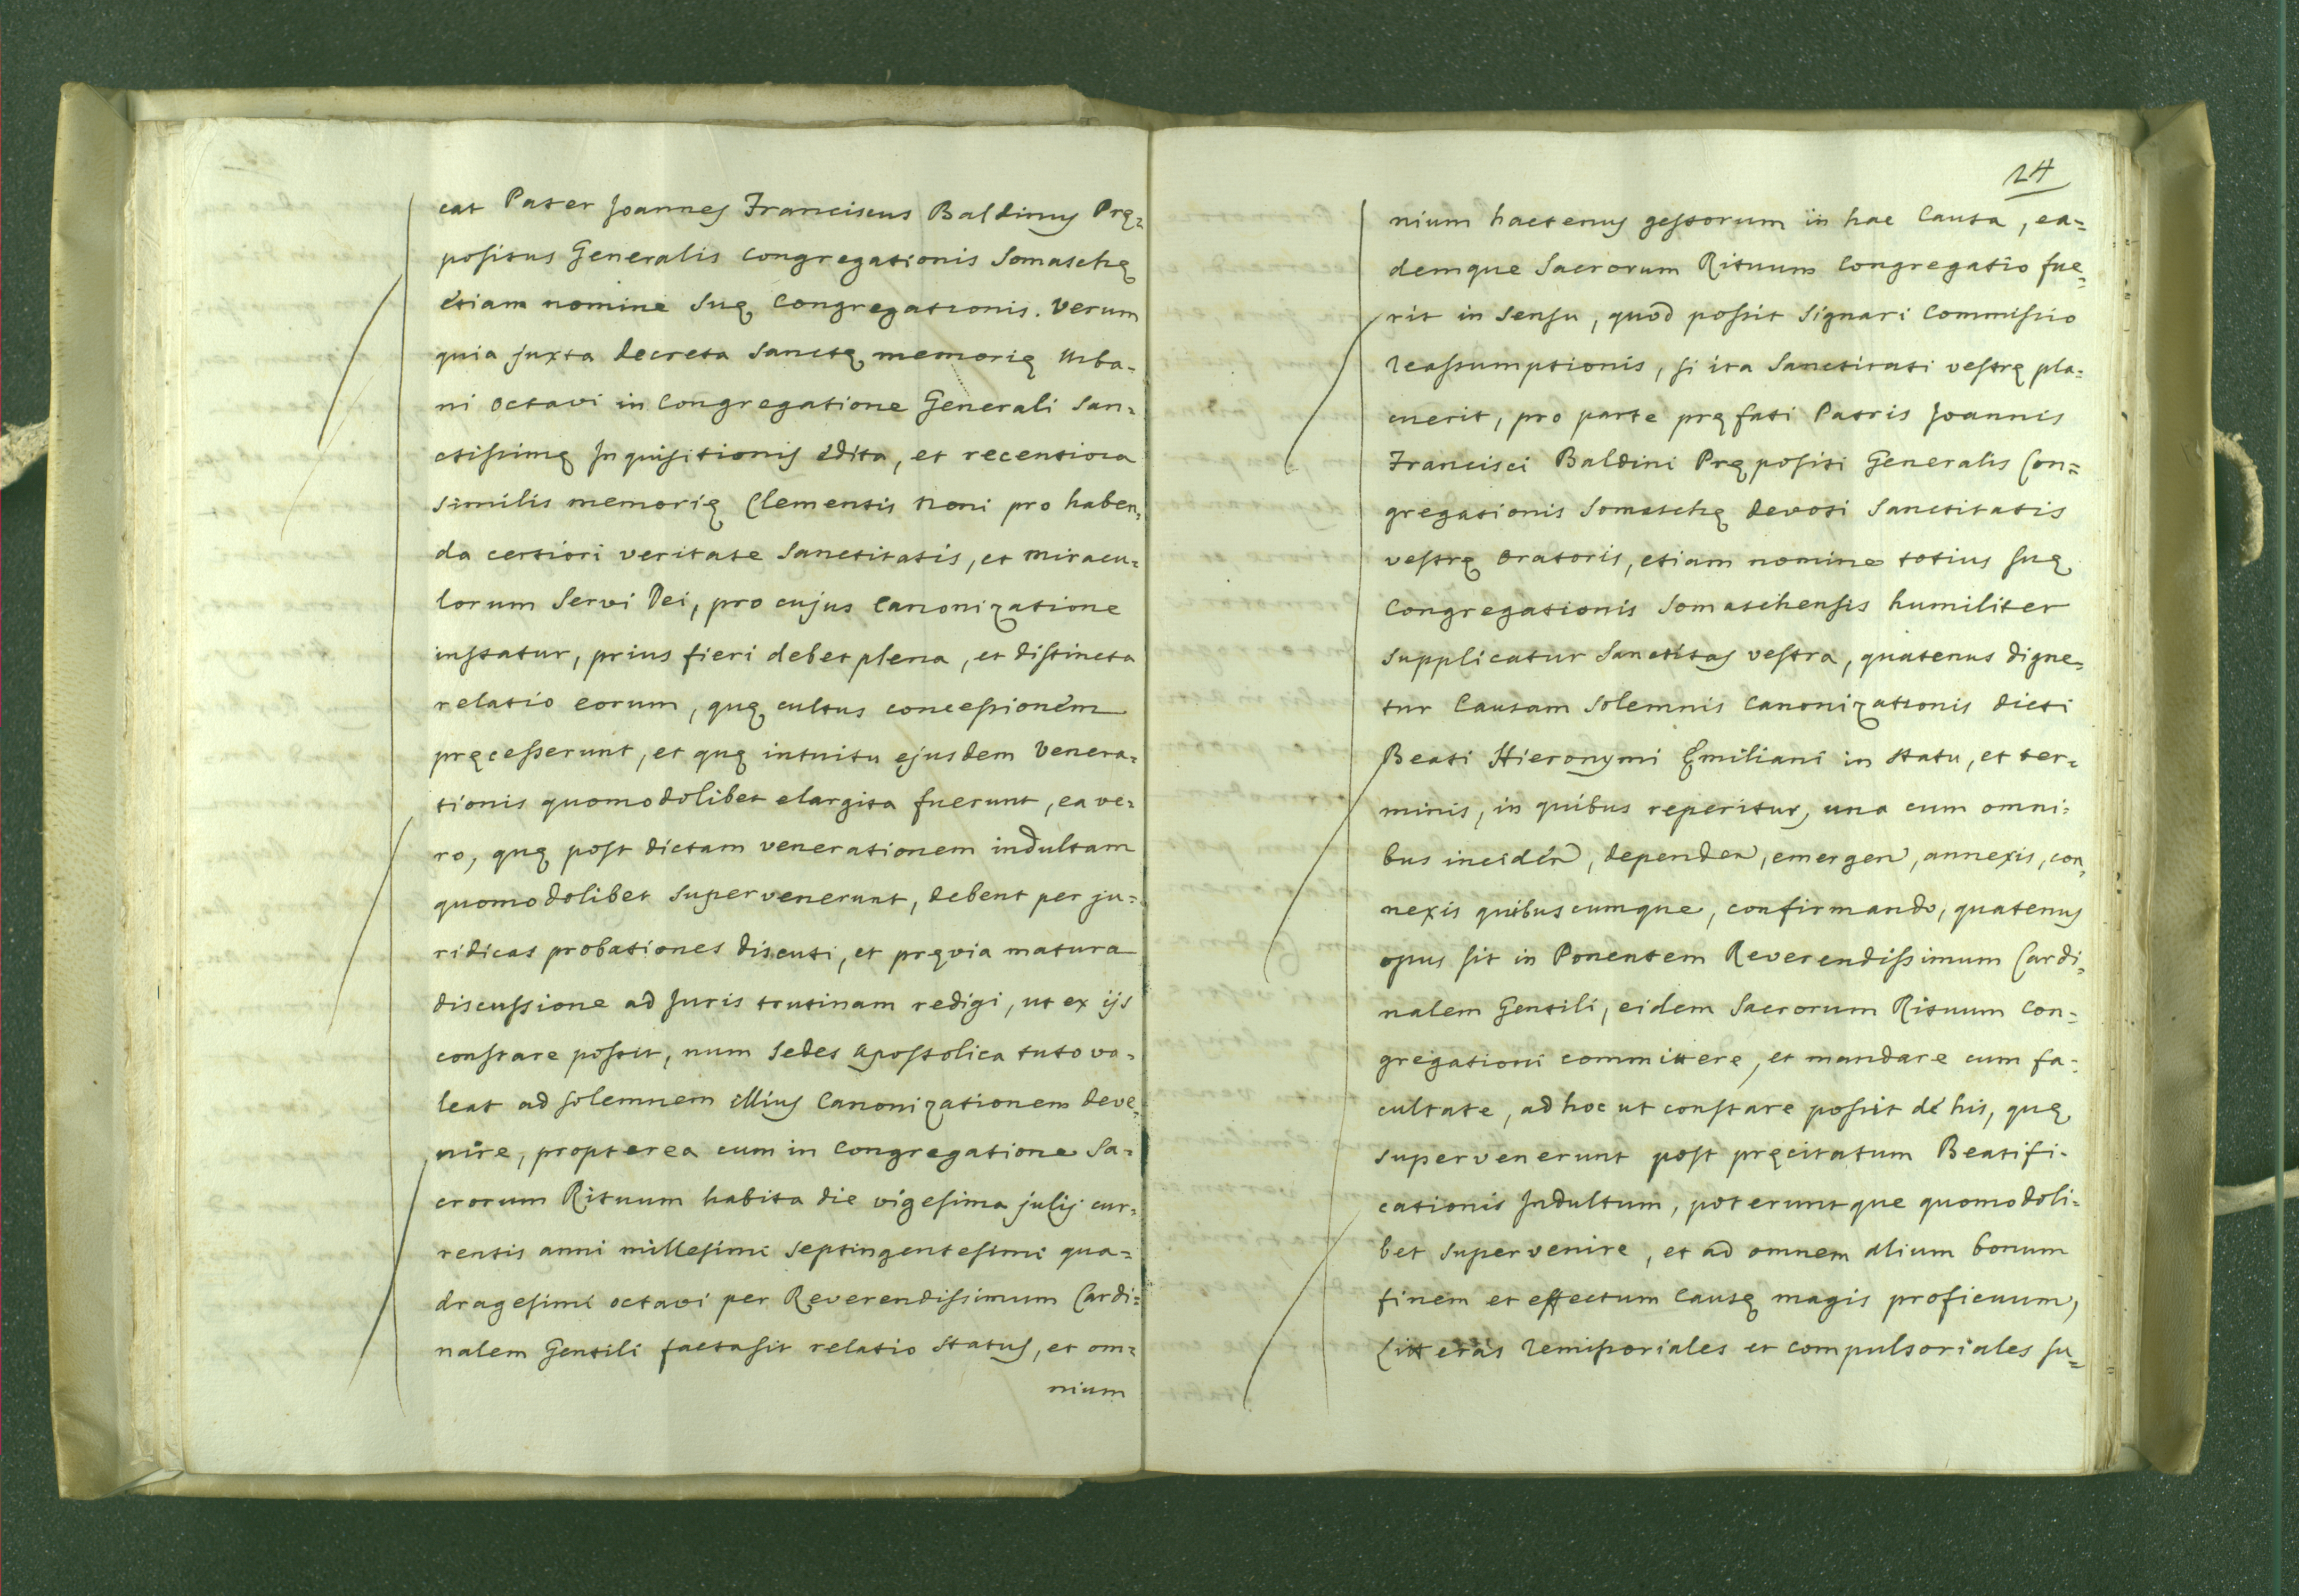 cat Pater Joannes Franciscus Baldinus Prę=
positus Generalis Congregationis Somaschę
étiam nomine suę Congregationis. Verum
quia juxta decreta Sanctę memorię Urba-
ni Octavi in Congregatione Generali San=
ctissimę Inquisitionis édita, et recentiora
similis memorię Clementis Noni pro haben,
da certiori veritate Sanctitatis, et miracu=
lorum Servi Dei, pro cujus Canonizatione
instatur, prius fieri debet plena, et distincta
relatio eorum, quę cultus concessioném
pręcesserunt, et quę intuitu ejusdem Venera=
tionis quomodolibet elargita fuerunt, ea ve=
ro, quę post dictam venerationem indultam
quomodolibet supervenerunt, debent per ju=
ridicas probationes discuti, et pręvia matura
discussione ad Juris trutinam redigi, ut ex ijs
constare possit, num Sedes Apostolica tuto va=
leat ad solemnem illius Canonizationem deve,
nire, propterea cum in Congregatione Sa=
crorum Rituum habita die vigesima julij cur,
rentis anni millesimi septingentesimi qua=
dragesimi octavi per Reverendissimum Cardi=
nalem Gentili facta sit relatio status, et om=
nium
24
nium hactenus gestorum in hac Causa, ea=
demque Sacrorum Rituum Congregatio fue=
rit in sensu, quod possit signari Commissio
reassumptionis, si ita Sanctitati vestrę pla=
cuerit, pro parte pręfati Patris Joannis
Francisci Baldini Prępositi Generalis Con=
gregationis Somaschę devoti Sanctitatis
vestrę Oratoris, etiam nomine totius suę
Congregationis Somaschensis humiliter
supplicatur Sanctitas vestra, quatenus digne=
tur Causam Solemnis Canonizationis dicti
Beati Hieronymi Ęmiliani in statu, et ter=
minis, in quibus reperitur, una cum omni=
bus incidén, dependen, emergen, annexis, con,
nexis quibuscumque, confirmando, quatenus
opus sit in Ponentem Reverendissimum Cardi,
nalem Gentili, eidem Sacrorum Rituum Con=
gregationi committere, et mandare cum fa=
cultate, ad hoc ut constare possit dé his, quę
supervenerunt post pręcitatum Beatifi-
cationis Indultum, poteruntque quomodoli=
bet supervenire, et ad omnem alium bonum
finem et effectum Causę magis proficuum,
Litteras remissoriales et compulsoriales su=